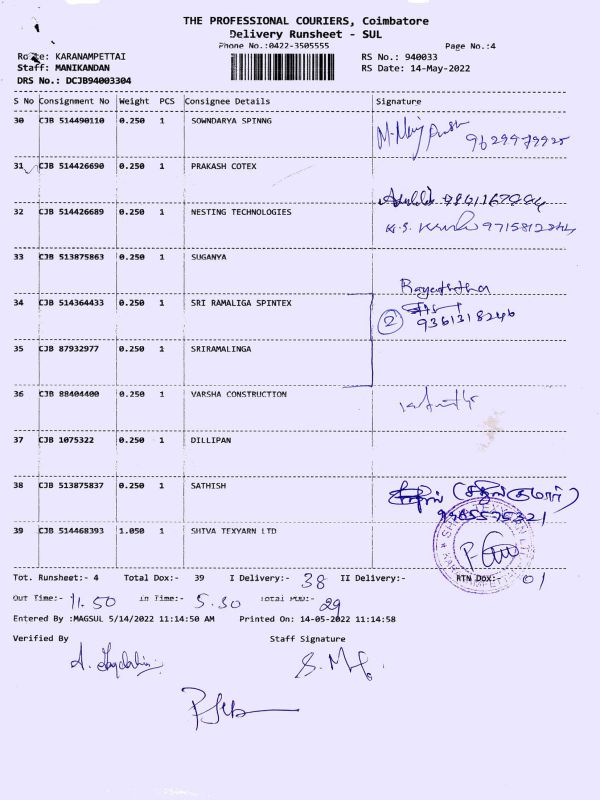 THE PROFESSIONAL COURIERS, Coimbatore
Delivery Runsheet - SUL
Phone No.:0422-3505555
Page No.:4
Route: KARANAMPETTAI
RS No.: 940033
Staff: MANIKANDAN
RS Date: 14-May-2022
DRS No.: DCJB94003304
S No Consignment No Weight PCS Consignee Details Signature
30 CJB 514490110 0.250 1 SOWNDARYA SPINNG
31 CJB 514426690 0.250 1 PRAKASH COTEX
32 CJB 514426689 0.250 1 NESTING TECHNOLOGIES
33 CJB 513875863 0.250 1 SUGANYA
34 CJB 514364433 0.250 1 SRI RAMALIGA SPINTEX
2 9361318246
35 CJB 87932977 0.250 1 SRIRAMALINGA
36 CJB 88404400 0.250 1 VARSHA CONSTRUCTION
37 CJB 1075322 0.250 1 DILLIPAN
38 CJB 513875837 0.250 1 SATHISH
39 CJB 514468393 1.050 1 SHIVA TEXYARN LTD
Tot. Runsheet:- 4 Total Dox:- 39 I Delivery:- 38 II Delivery:- RTN Dox:- 01
Out Time:- 11.50 in Time:- 5.30 Total POD:- 29
Entered By :MAGSUL 5/14/2022 11:14:50 AM Printed On: 14-05-2022 11:14:58
Verified By Staff Signature